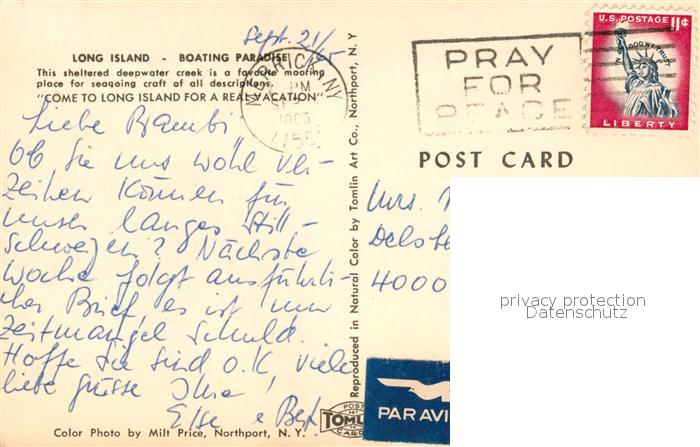 Sept. 21/65
LONG ISLAND - BOATING PARADISE
This sheltered deepwater creek is a favorite mooring
place for seagoing craft of all descriptions.
"COME TO LONG ISLAND FOR A REAL VACATION"
MERRICK, N.Y.
PM
1965
PRAY
FOR
PEACE
U.S. POSTAGE 11¢
IN GOD WE TRUST
LIBERTY
Liebe Bambi,
Ob Sie uns wohl ver-
zeihen können für
unser langes Still-
schweigen? Nächste
Woche folgt ausführli-
cher Brief es ist nur
Zeitmangel schuld.
Hoffe Sie sind o.K, viele
liebe grüsse Ihre!
Else & Bert
Reproduced in Natural Color by Tomlin Art Co., Northport, N. Y.
POST CARD
Mrs.
4000
privacy protection
Datenschutz
PAR AVI
POST
TOMLIN
CARD
Color Photo by Milt Price, Northport, N. Y.